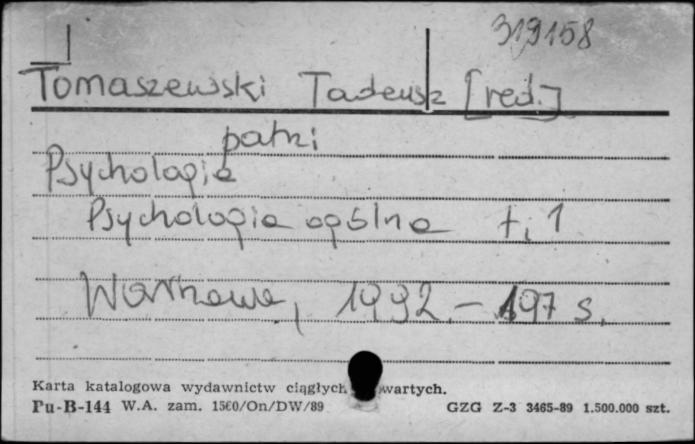 319158
Tomaszewski Tadeusz [red.]
patrz
Psychologia
Psychologia ogólna t. 1
Warszawa, 1992. – 197 s.
Karta katalogowa wydawnictw ciągłych wartych.
Pu-B-144 W.A. zam. 1560/On/DW/89 GZG Z-3 3465-89 1.500.000 szt.